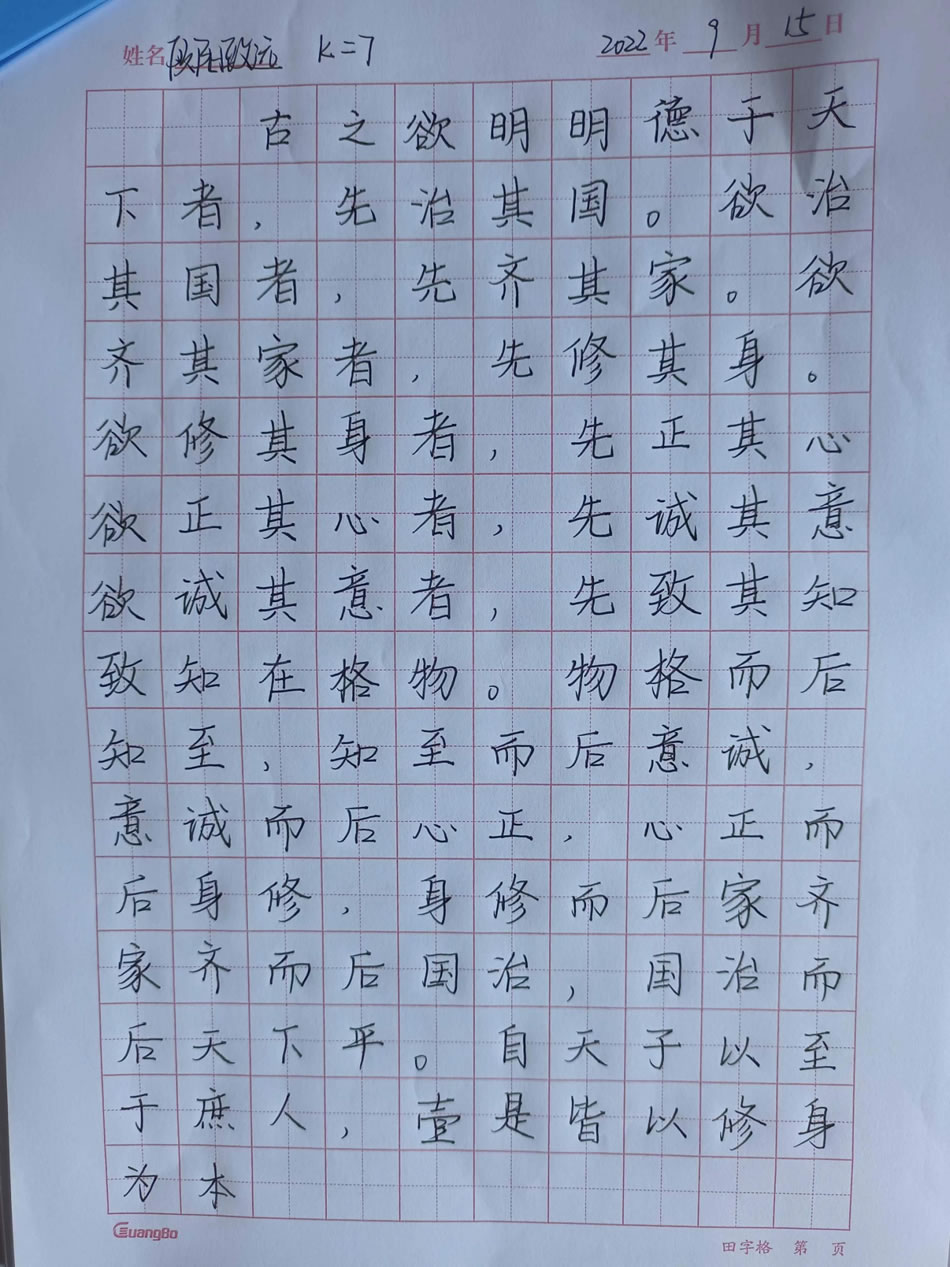 姓名 K=7 2022年 9月15日
古之欲明明德于天
下者，先治其国。欲治
其国者，先齐其家。欲
齐其家者，先修其身。
欲修其身者，先正其心
欲正其心者，先诚其意
欲诚其意者，先致其知
致知在格物。物格而后
知至，知至而后意诚，
意诚而后心正，心正而
后身修，身修而后家齐
家齐而后国治，国治而
后天下平。自天子以至
于庶人，壹是皆以修身
为本
GuangBo
田字格 第 页